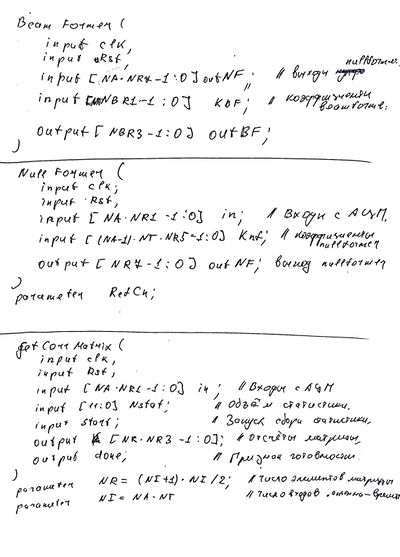 Beam Former (
input clk,
input Rst,
input [NA·NR7-1:0] outNF; // выходы nullformer,
input [NBR1-1:0] KBF; // коэффициенты beamformer.
output [NBR3-1:0] outBF;
)
Null Former (
input clk;
input Rst,
input [NA·NR1-1:0] in; // Входы с АЦП,
input [(NA-1)·NT·NR5-1:0] Knf; // коэффициенты nullformer
output [NR7-1:0] outNF; выход nullformer
)
parameter RefCh;
Get Corr Matrix (
input clk,
input Rst,
input [NA·NR1-1:0] in; // Входы с АЦП
input [11:0] Nstat; // Объём статистики.
input start; // Запуск сбора статистики,
output [NR·NR3-1:0]; // отсчёты матрицы,
output done; // Признак готовности.
)
parameter NR = (NI+1)·NI/2; // число элементов матрицы
parameter NI = NA·NT // число входов